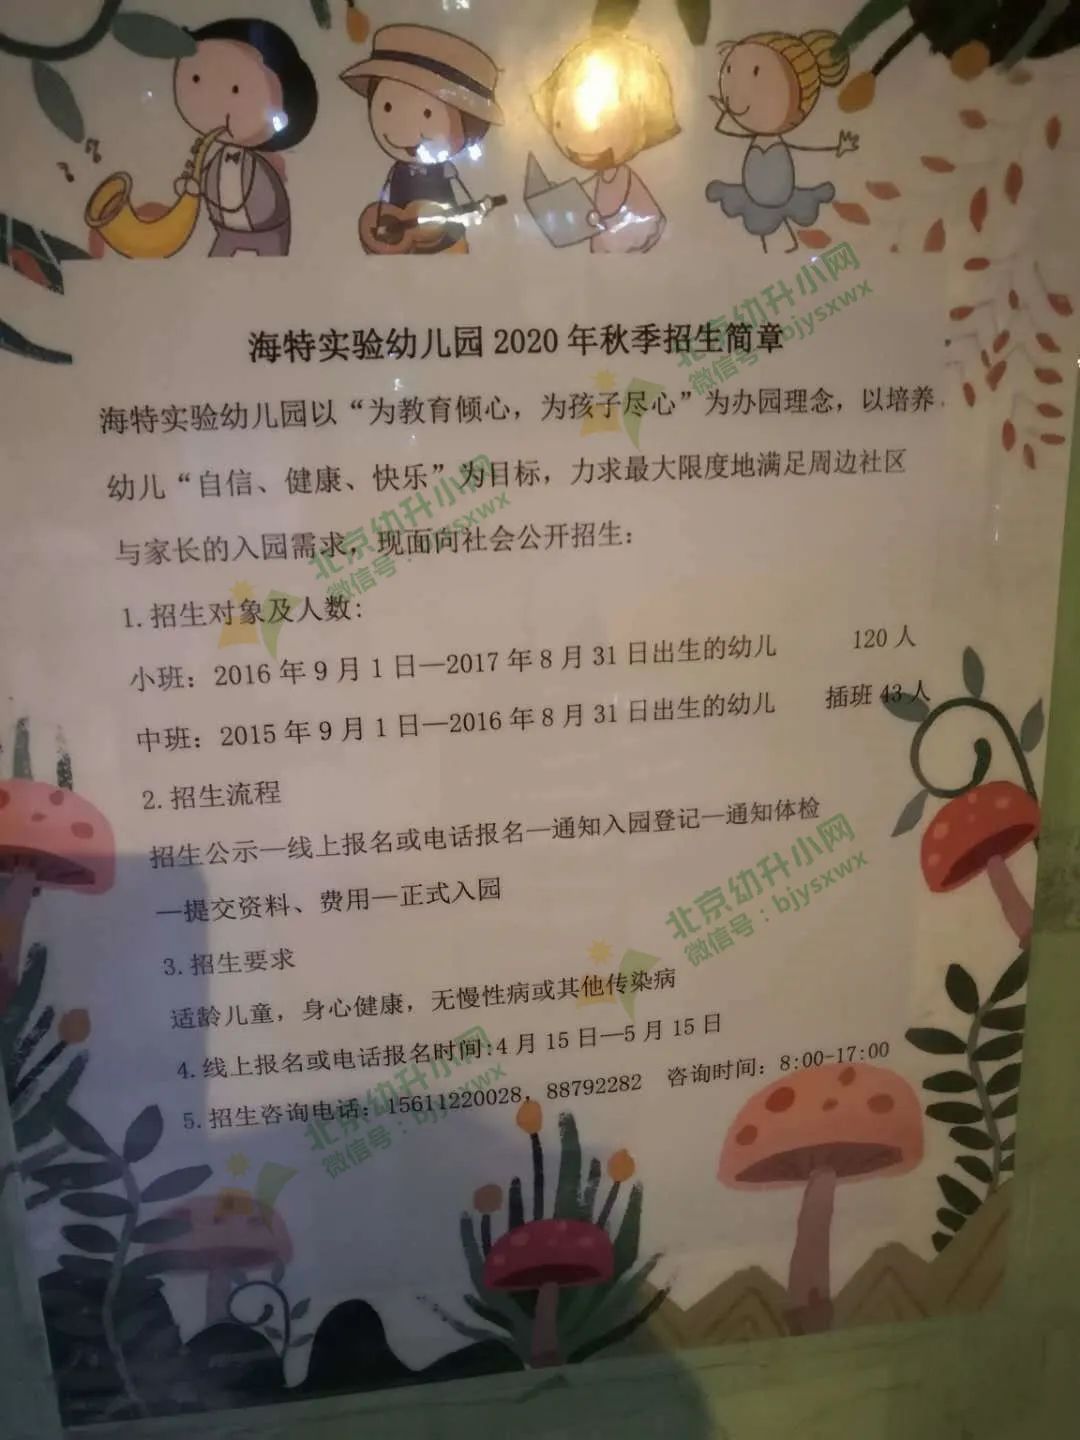 海特实验幼儿园 2020 年秋季招生简章
海特实验幼儿园以“为教育倾心，为孩子尽心”为办园理念，以培养
幼儿“自信、健康、快乐”为目标，力求最大限度地满足周边社区
与家长的入园需求，现面向社会公开招生：
1.招生对象及人数:
小班：2016 年 9 月 1 日—2017 年 8 月 31 日出生的幼儿 120 人
中班：2015 年 9 月 1 日—2016 年 8 月 31 日出生的幼儿 插班 43 人
2.招生流程
招生公示—线上报名或电话报名—通知入园登记—通知体检
—提交资料、费用—正式入园
3.招生要求
适龄儿童，身心健康，无慢性病或其他传染病
4.线上报名或电话报名时间:4 月 15 日—5 月 15 日
5.招生咨询电话：15611220028，88792282 咨询时间：8:00-17:00
北京幼升小网
微信号：bjysxwx
北京幼升小网
微信号：bjysxwx
北京幼升小网
微信号：bjysxwx
北京幼升小网
微信号：bjysxwx